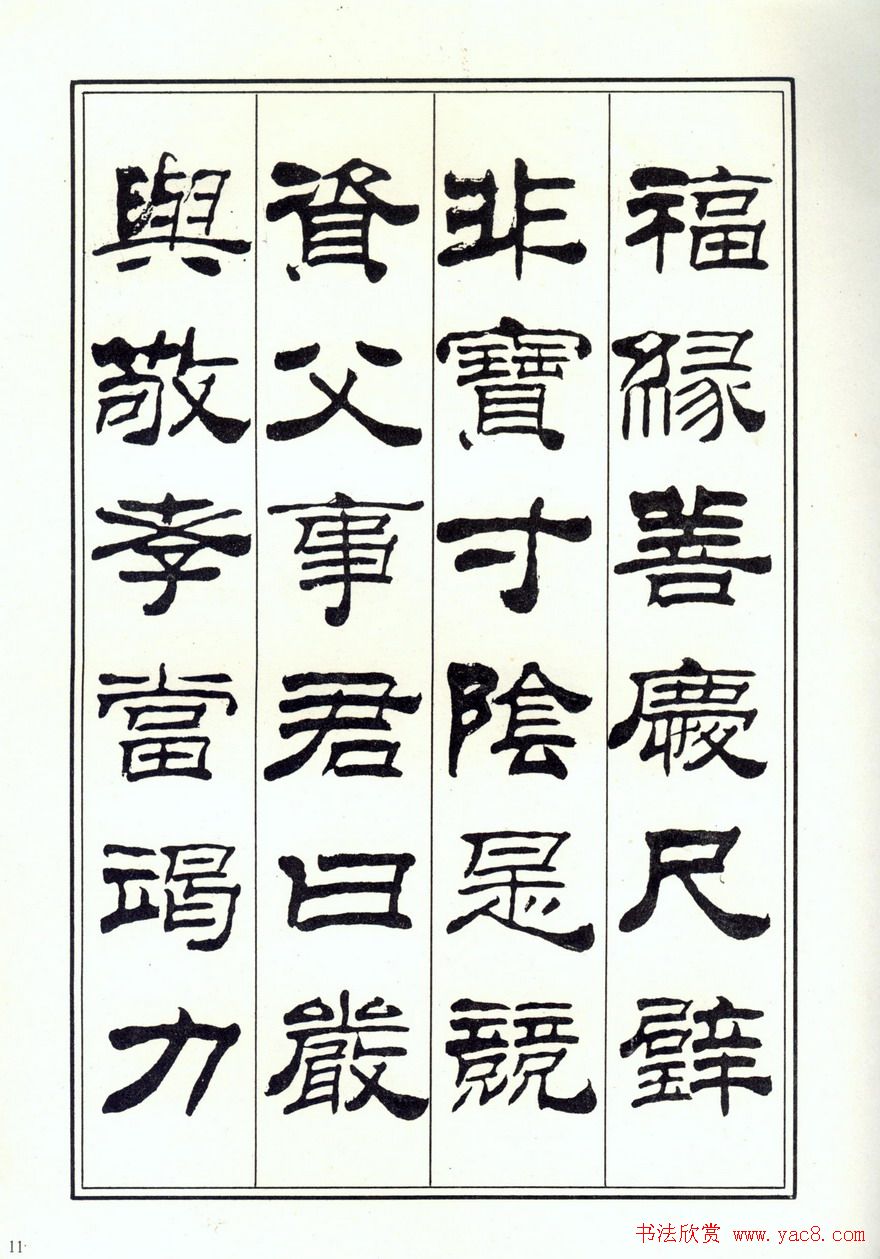 福緣善慶尺璧
非寶寸陰是競
資父事君曰嚴
與敬孝當竭力
11
书法欣赏 www.yac8.com